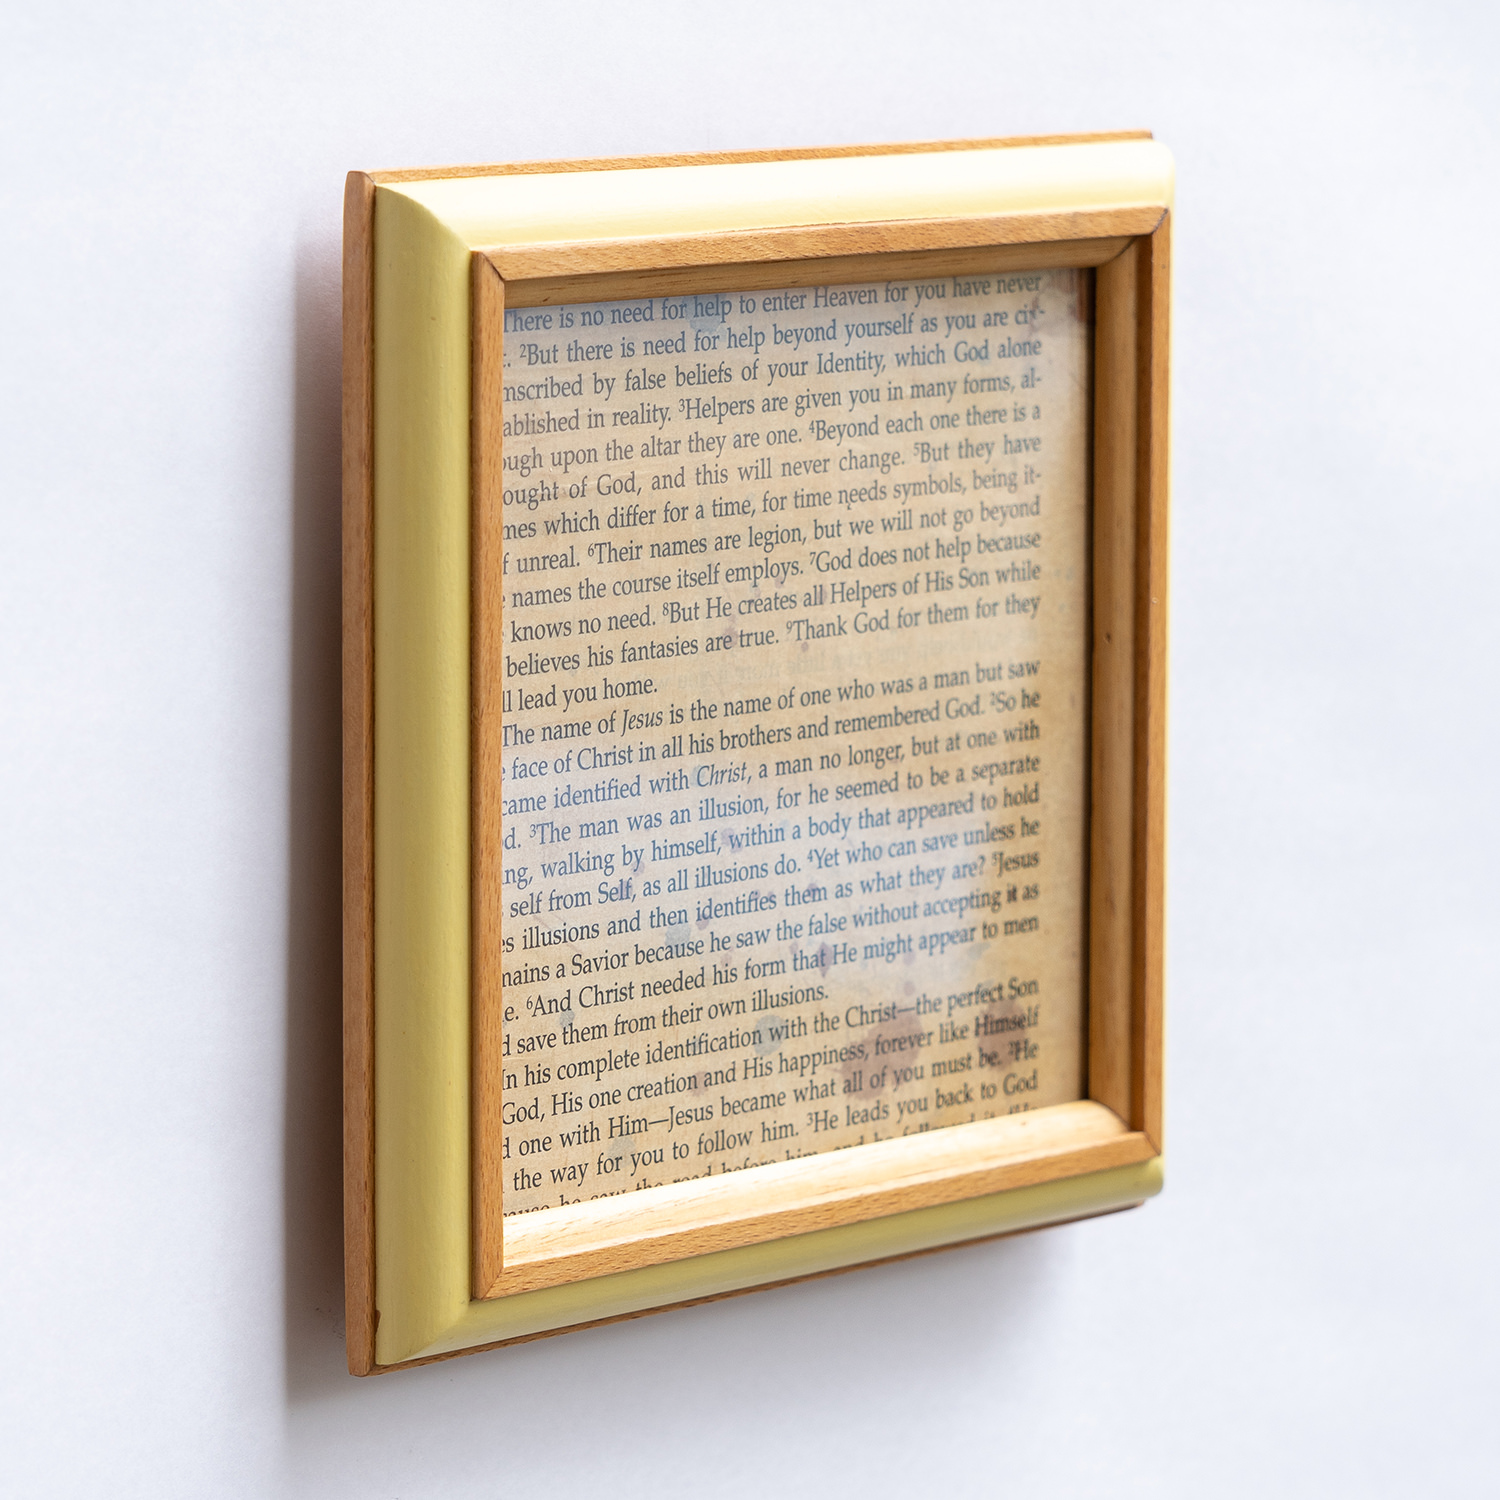 There is no need for help to enter Heaven for you have never
. ²But there is need for help beyond yourself as you are cir-
mscribed by false beliefs of your Identity, which God alone
ablished in reality. ³Helpers are given you in many forms, al-
ough upon the altar they are one. ⁴Beyond each one there is a
ought of God, and this will never change. ⁵But they have
mes which differ for a time, for time needs symbols, being it-
f unreal. ⁶Their names are legion, but we will not go beyond
names the course itself employs. ⁷God does not help because
knows no need. ⁸But He creates all Helpers of His Son while
believes his fantasies are true. ⁹Thank God for them for they
ll lead you home.
The name of Jesus is the name of one who was a man but saw
face of Christ in all his brothers and remembered God. ²So he
came identified with Christ, a man no longer, but at one with
d. ³The man was an illusion, for he seemed to be a separate
ng, walking by himself, within a body that appeared to hold
self from Self, as all illusions do. ⁴Yet who can save unless he
es illusions and then identifies them as what they are? ⁵Jesus
mains a Savior because he saw the false without accepting it as
e. ⁶And Christ needed his form that He might appear to men
d save them from their own illusions.
In his complete identification with the Christ—the perfect Son
God, His one creation and His happiness, forever like Himself
d one with Him—Jesus became what all of you must be. ²He
the way for you to follow him. ³He leads you back to God
ause he saw the road before him, and he followed it.